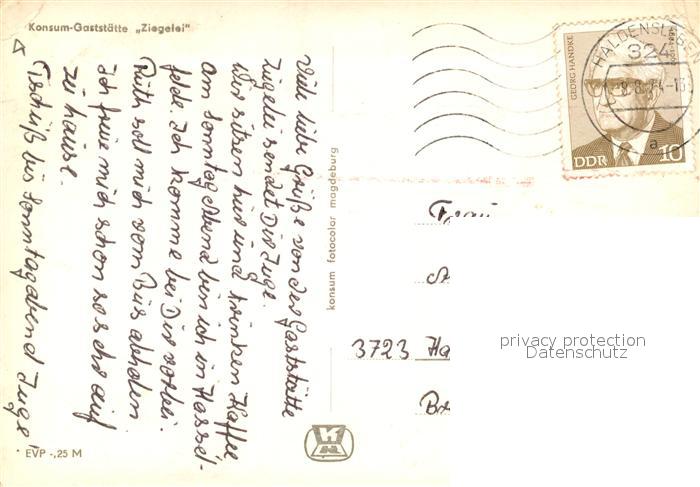 Konsum-Gaststätte „Ziegelei"
Viele liebe Grüße von der Gaststätte
Ziegelei sendet Dir Inge.
Wir sitzen hier und trinken Kaffee
Am Sonntag Abend bin ich in Hassel-
felde. Ich komme bei Dir vorbei.
Ruth soll mich vom Bus abholen
Ich freue mich schon so sehr auf
zu hause.
Tschüß bis Sonntagabend Inge
EVP -,25 M
konsum fotocolor magdeburg
HALDENSLEBEN
324
a
GEORG HANDKE
DDR 10
Frau
3723 Ha
privacy protection
Datenschutz